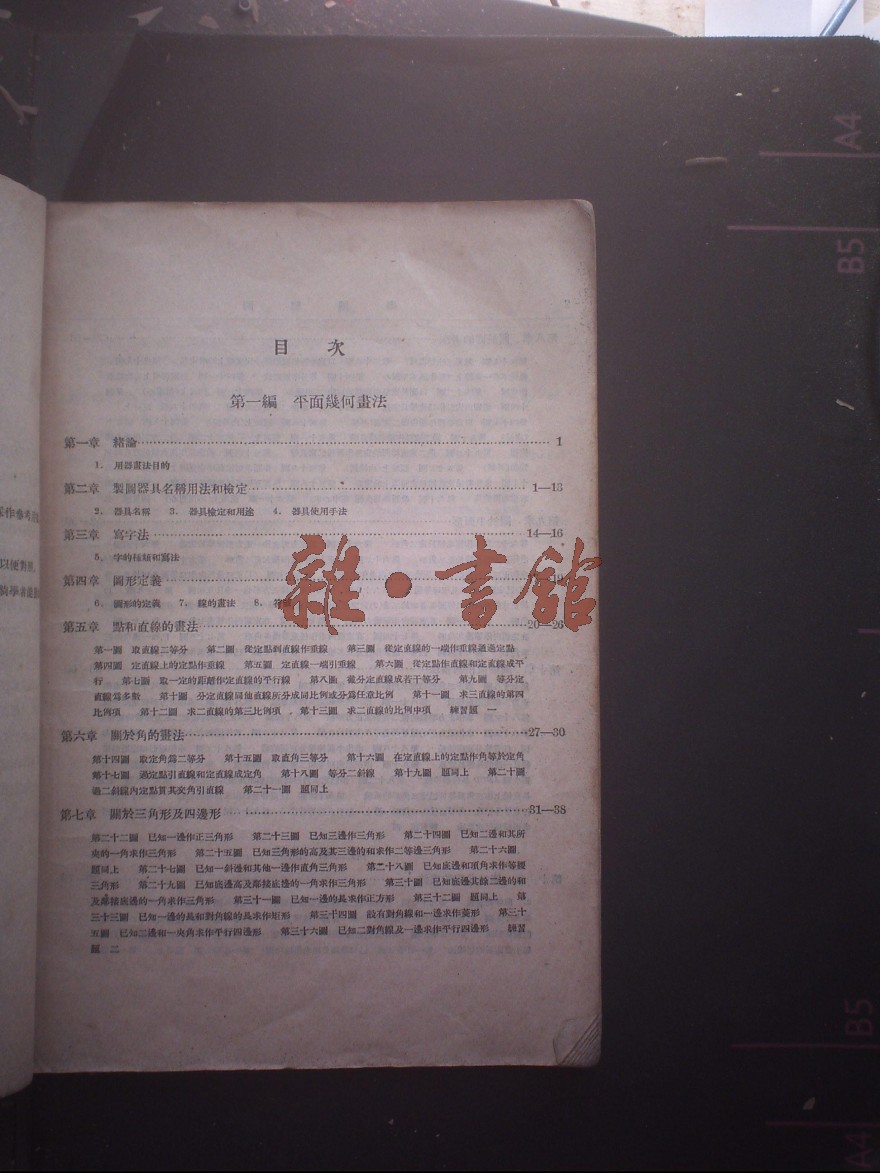 目 次
第一編 平面幾何畫法
第一章 緒論 1
1. 用器畫法目的
第二章 製圖器具名稱用法和檢定 1—13
2. 器具名稱 3. 器具檢定和用途 4. 器具使用手法
第三章 寫字法 14—16
5. 字的種類和寫法
第四章 圖形定義
6. 圖形的定義 7. 線的畫法 8.
第五章 點和直線的畫法 20—26
第一圖 取直線二等分 第二圖 從定點到直線作垂線 第三圖 從定直線的一端作垂線通過定點
第四圖 定直線上的定點作垂線 第五圖 定直線一端引垂線 第六圖 從定點作直線和定直線成平
行 第七圖 取一定的距離作定直線的平行線 第八圖 截分定直線成若干等分 第九圖 等分定
直線爲多數 第十圖 分定直線同他直線所分成同比例或分爲任意比例 第十一圖 求三直線的第四
比例項 第十二圖 求二直線的第三比例項 第十三圖 求二直線的比例中項 練習題 一
第六章 關於角的畫法 27—30
第十四圖 取定角爲二等分 第十五圖 取直角三等分 第十六圖 在定直線上的定點作角等於定角
第十七圖 過定點引直線和定直線成定角 第十八圖 等分二斜線 第十九圖 題同上 第二十圖
過二斜線內定點貫其交角引直線 第二十一圖 題同上
第七章 關於三角形及四邊形 31—38
第二十二圖 已知一邊作正三角形 第二十三圖 已知三邊作三角形 第二十四圖 已知二邊和其所
夾的一角求作三角形 第二十五圖 已知三角形的高及其三邊的和求作二等邊三角形 第二十六圖
題同上 第二十七圖 已知一斜邊和其他一邊作直角三角形 第二十八圖 已知底邊和頂角求作等腰
三角形 第二十九圖 已知底邊高及鄰接底邊的一角求作三角形 第三十圖 已知底邊其餘二邊的和
及鄰接底邊的一角求作三角形 第三十一圖 已知一邊的長求作正方形 第三十二圖 題同上 第
三十三圖 已知一邊的長和對角線的長求作矩形 第三十四圖 設有對角線和一邊求作菱形 第三十
五圖 已知二邊和一夾角求作平行四邊形 第三十六圖 已知二對角線及一邊求作平行四邊形 練習
題 二
以便對照
雜·書館
A4
B5
B5
A4